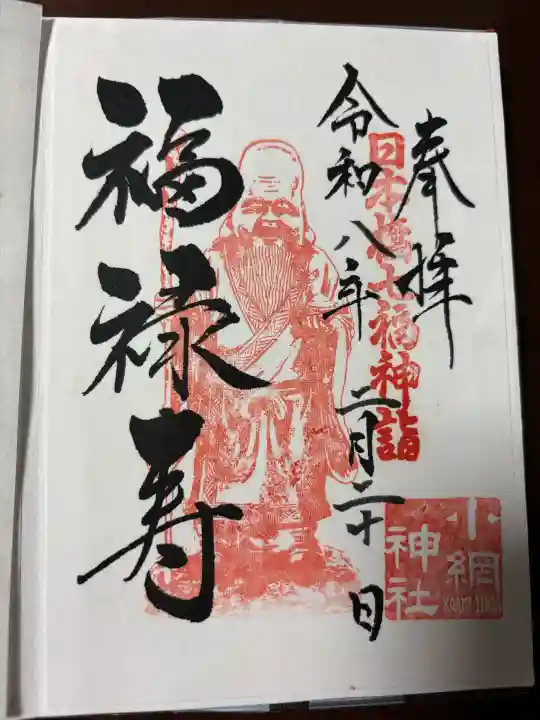 奉拝
日本橋七福神詣
令和八年二月二十日
福禄寿
小網
神社
KOAMI JINJA